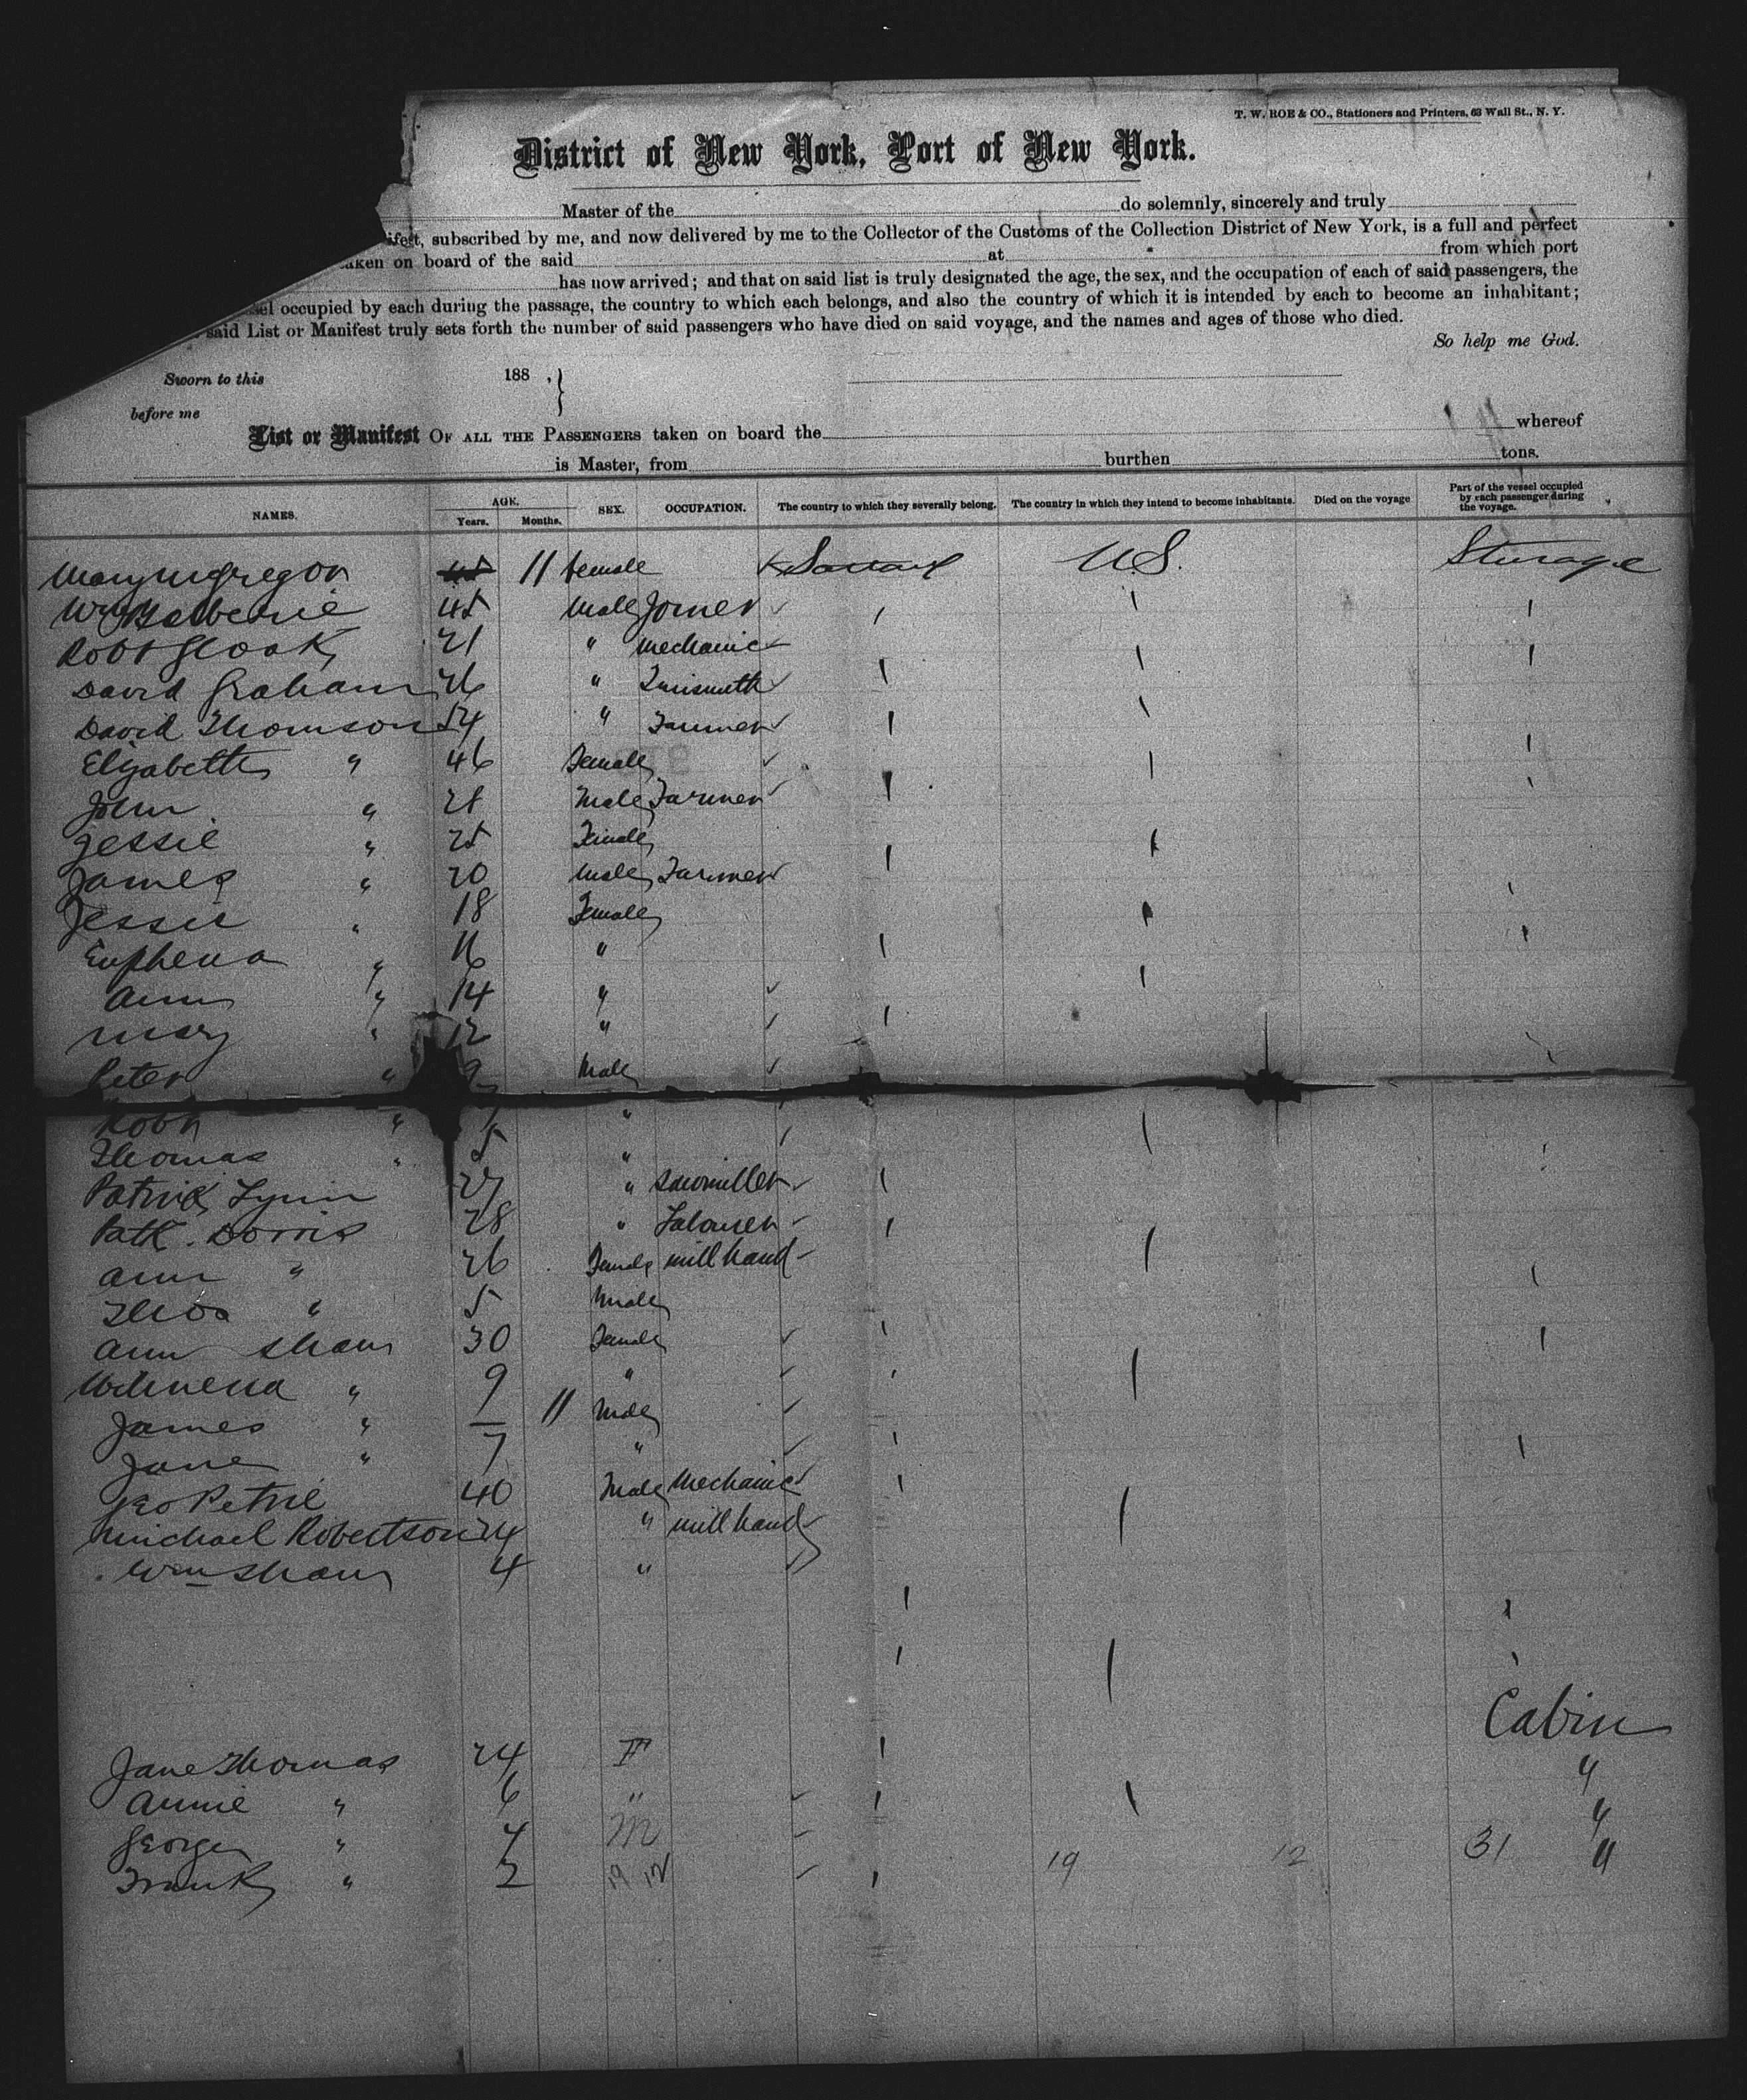 T. W. ROE & CO., Stationers and Printers, 63 Wall St., N. Y.
District of New York, Port of New York.
Master of the do solemnly, sincerely and truly
ifest, subscribed by me, and now delivered by me to the Collector of the Customs of the Collection District of New York, is a full and perfect
taken on board of the said at from which port
has now arrived; and that on said list is truly designated the age, the sex, and the occupation of each of said passengers, the
sel occupied by each during the passage, the country to which each belongs, and also the country of which it is intended by each to become an inhabitant;
said List or Manifest truly sets forth the number of said passengers who have died on said voyage, and the names and ages of those who died.
So help me God.
Sworn to this 188 ,}
before me
List or Manifest OF ALL THE PASSENGERS taken on board the whereof
is Master, from burthen tons.
NAMES. AGE. Years. Months. SEX. OCCUPATION. The country to which they severally belong. The country in which they intend to become inhabitants. Died on the voyage Part of the vessel occupied by each passenger during the voyage.
Mary McGregor 11 female U.S.
Wm 45 Male Joiner
Robt 21 " Mechanic
David Graham 26 " Tinsmith
David Thomson 54 " Farmer
Elizabeth " 46 Female
John " 28 Male Farmer
Jessie " 25 Female
James " 20 Male Farmer
Jessie " 18 Female
Euphena " 16 "
Ann " 14 "
Mary " 12 "
Peter " 9 Male
Robt " "
Thomas " 5 "
Patrick Lynn 27 " Sawmiller
Patk. Dorris 28 " Labourer
Ann " 26 Female mill hand
Thos " 5 Male
Ann Shaw 30 Female
" 9 "
James " — 11 Male
Jane " 7 "
Geo Petrie 40 Male Mechanic
Michael Robertson 24 " mill hand
Wm Shaw 4 "
Cabin
Jane Thomas 24 F "
Annie " 6 " "
George " 4 M "
Frank " 2 19 12 31